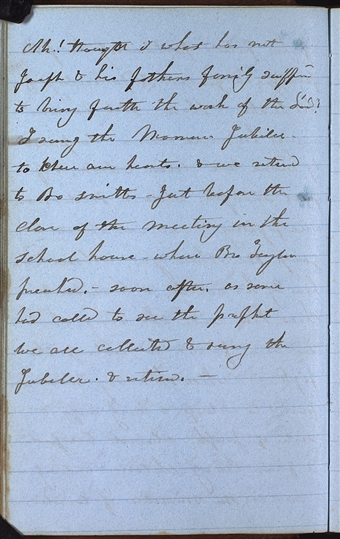 Ah! thought I what has not
Joseph & his fathers family suffer
to bring forth the work of the Lord?
I sung the Mormon Jubilee.
to cheer our hearts. & we retired
to Bro Smiths - Just before the
close of the meeting in the
school house - where Bro Taylor
preached, - soon after. as some
had called to see the prophet
we all collected & sung the
Jubilee. & retired. -